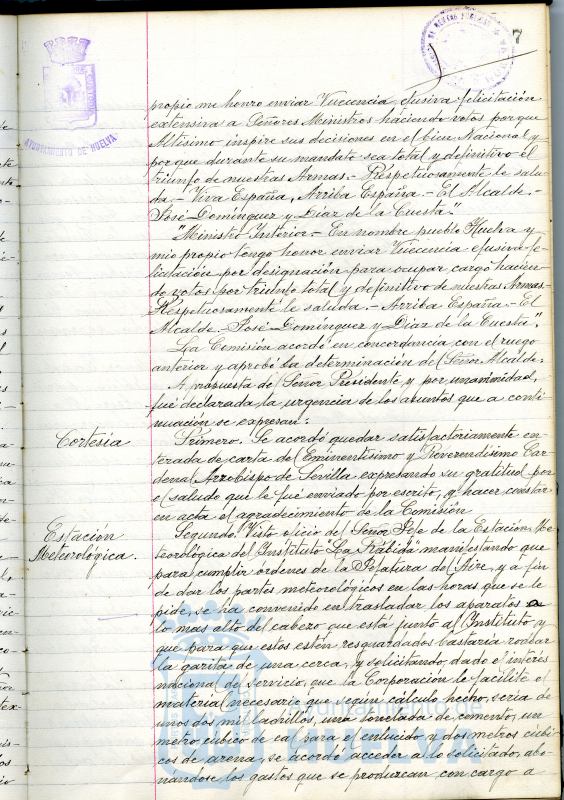 7
AYUNTAMIENTO DE HUELVA
propio me honro enviar Vuecencia, efusiva felicitación
extensiva a Señores Ministros haciendo votos porque
Altísimo inspire sus decisiones en el bien Nacional y
porque durante su mandato sea total y definitivo el
triunfo de nuestras Armas.- Respetuosamente le salu-
da.- Viva España, Arriba España.- El Alcalde.-
José Domínguez y Díaz de la Cuesta."
"Ministro Interior.- En nombre pueblo Huelva y
mio propio tengo honor enviar Vuecencia efusiva fe-
licitación por designación para ocupar cargo hacien-
do votos por triunfo total y definitivo de nuestras Armas.-
Respetuosamente le saluda.- Arriba España.- El
Alcalde. José Domínguez y Díaz de la Cuesta".
La Comisión acordó en concordancia con el ruego
anterior y aprobó la determinación del Señor Alcalde.
A propuesta del Señor Presidente y por unanimidad,
fué declarada la urgencia de los asuntos que a conti-
nuación se expresan:
Cortesía
Primero. Se acordó quedar satisfactoriamente en-
terada de carta del Eminentísimo y Reverendísimo Car-
denal Arzobispo de Sevilla expresando su gratitud por
el saludo que le fué enviado por escrito, y hacer constar
en acta el agradecimiento de la Comisión
Estación
Meteorológica.
Segundo. Visto oficio del Señor Jefe de la Estación Me-
teorológica del Instituto "La Rábida" manifestando que
para cumplir órdenes de la Jefatura del Aire, y a fin
de dar los partes meteorológicos en las horas que se le
pide, se ha convenido en trasladar los aparatos a
lo mas alto del cabezo que está junto al Instituto y
que para que estos estén resguardados bastaría rodear
la garita de una cerca, y solicitando, dado el interés
nacional del servicio, que la Corporación le facilite el
material necesario que segun cálculo hecho, sería de
unos dos mil ladrillos, una tonelada de cemento, un
metro cúbico de cal para el enlucido y dos metros cúbi-
cos de arena, se acordó acceder a lo solicitado, abo-
nándose los gastos que se produzcan con cargo a